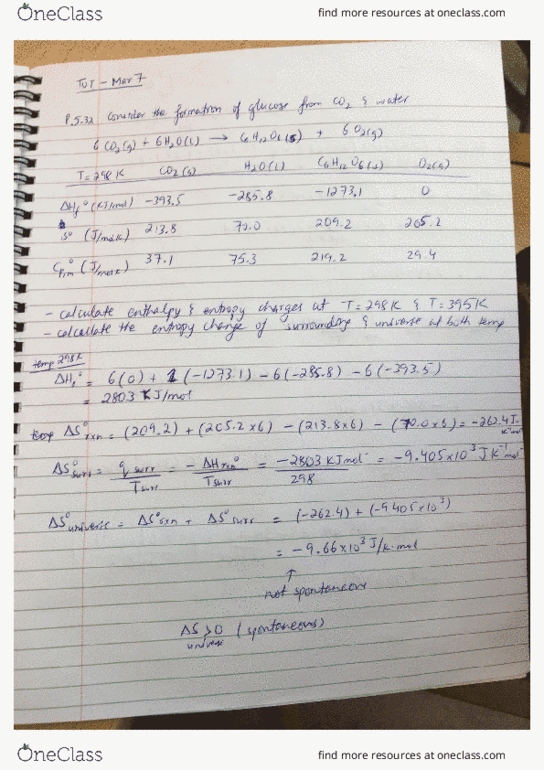 OneClass find more resources at oneclass.com
TUT - Mar 7
P.5.32 Consider the formation of glucose from CO2 & water
6 CO2(g) + 6H2O(l) → C6H12O6(s) + 6 O2(g)
T=298K CO2(g) H2O(l) C6H12O6(s) O2(g)
ΔHf° (KJ/mol) -393.5 -285.8 -1273.1 0
S° (J/molK) 213.8 70.0 209.2 205.2
Cp,m° (J/molK) 37.1 75.3 219.2 29.4
- calculate enthalpy & entropy changes at T=298K & T=395K
- calculate the entropy change of surroundings & universe at both temp
temp 298K
ΔHr° = 6(0) + 1(-1273.1) - 6(-285.8) - 6(-393.5)
= 2803 KJ/mol
ΔS°rxn = (209.2) + (205.2 x6) - (213.8x6) - (70.0x6) = -262.4 J K-1mol-1
ΔS°surr = q surr / Tsurr = - ΔHrxn° / Tsurr = -2803 KJmol- / 298 = -9.405x10³ J K-1 mol-1
ΔS°universe = ΔS°rxn + ΔS°surr = (-262.4) + (-9.405x10³)
= -9.66x10³ J/K.mol
↑
not spontaneous
ΔS universe >0 (spontaneous)
OneClass find more resources at oneclass.com